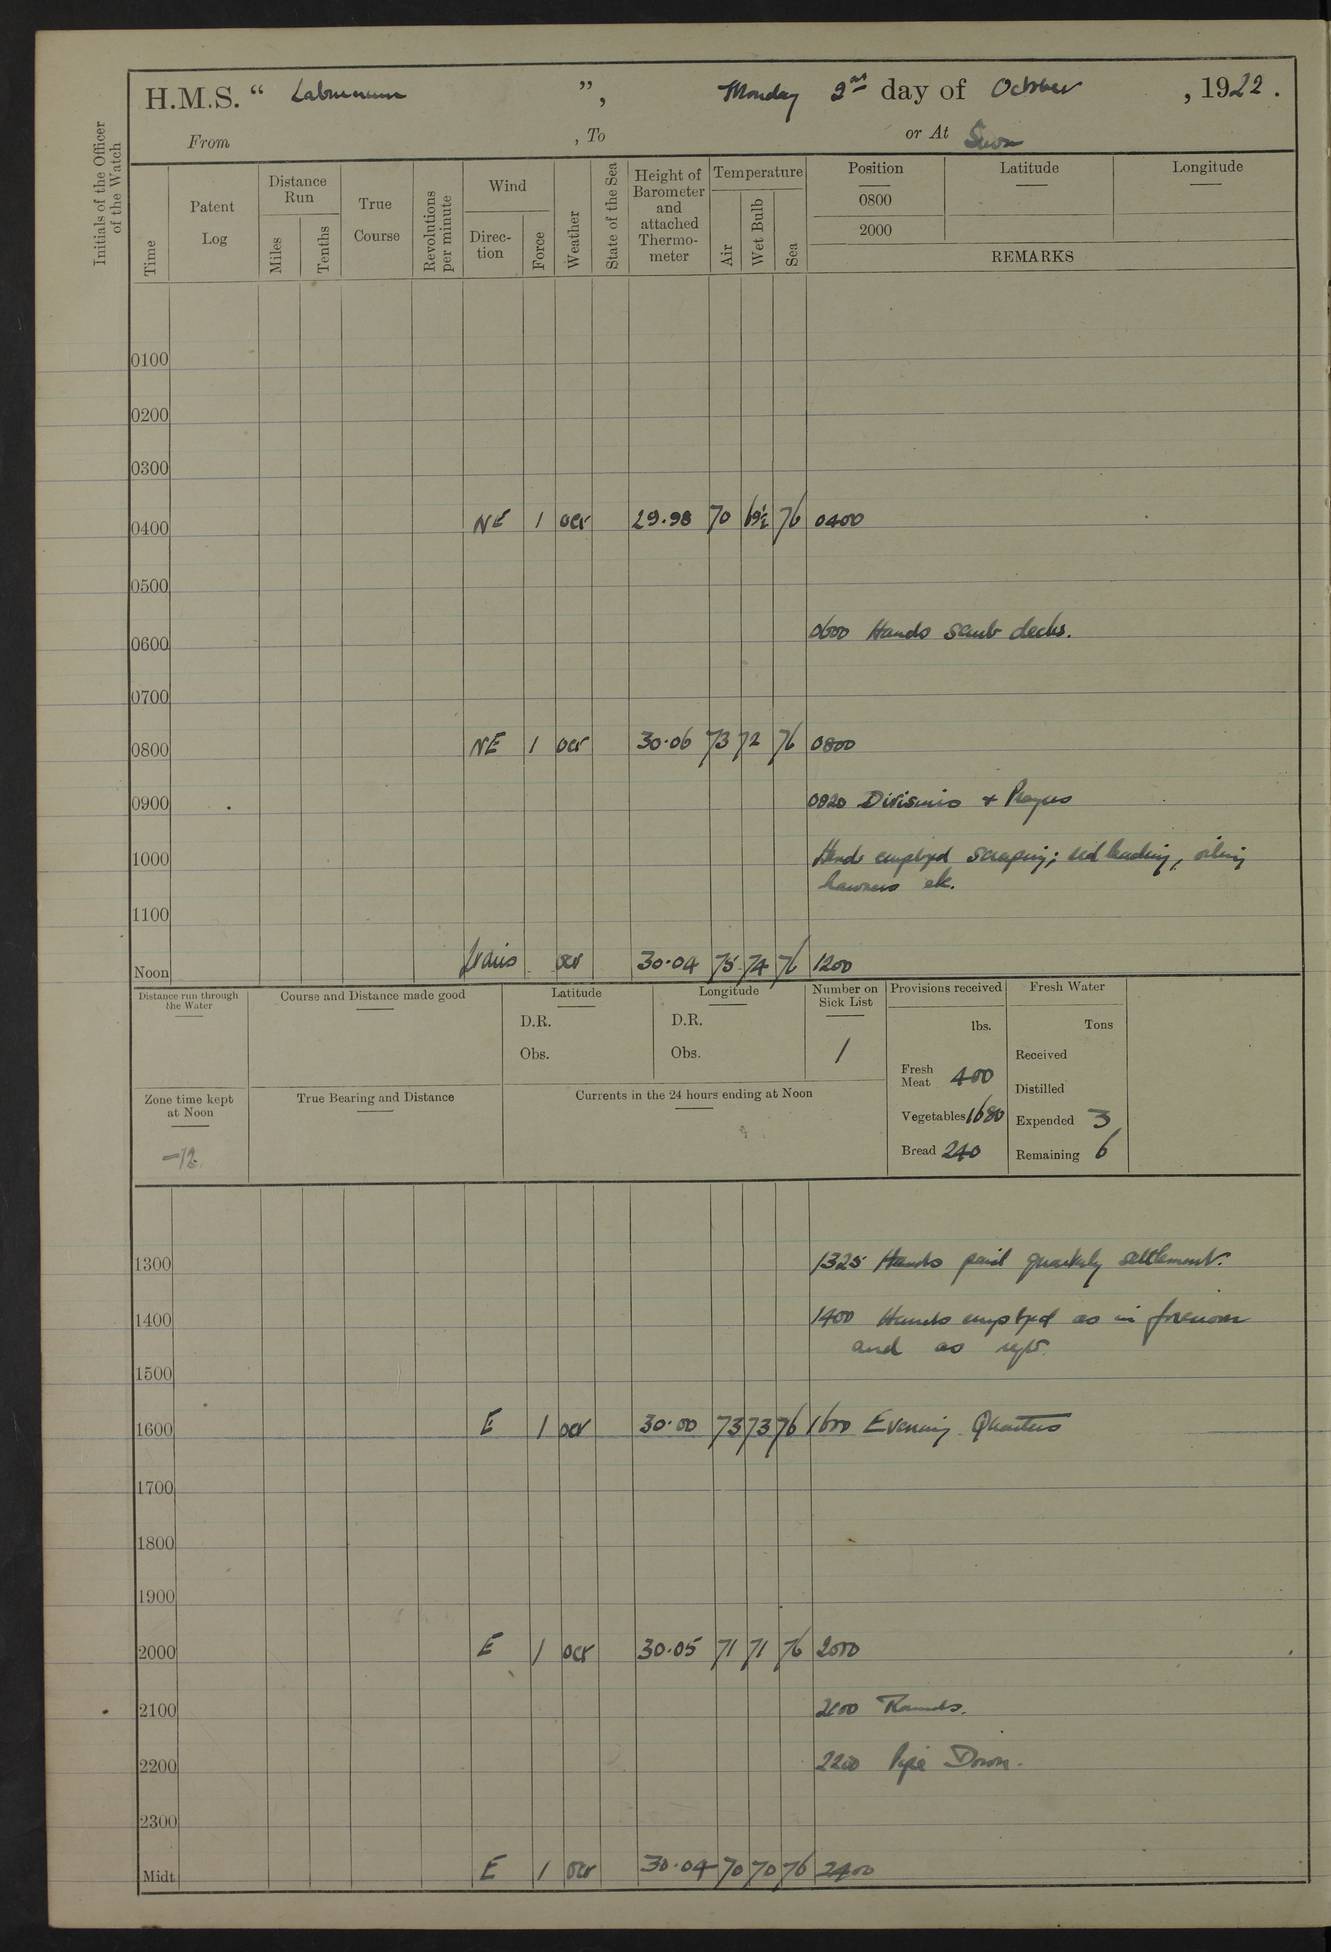 H.M.S. “ Laburnum ”, Monday 2nd day of October, 1922.
From , To or At Suva
Initials of the Officer of the Watch
Time
Patent Log
Distance Run
Miles
Tenths
True Course
Revolutions per minute
Wind
Direc-tion
Force
Weather
State of the Sea
Height of Barometer and attached Thermo-meter
Temperature
Air
Wet Bulb
Sea
Position Latitude Longitude
0800
2000
REMARKS
0100
0200
0300
0400 NE 1 ocr 29.98 70 69½ 76 0400
0500
0600 0600 Hands scrub decks.
0700
0800 NE 1 ocr 30.06 73 72 76 0800
0900 0820 Divisions + Prayers
1000 Hands employed scraping; red leading, oiling
hawsers etc.
1100
Noon Vario ocr 30.04 75 74 76 1200
Distance run through the Water
Course and Distance made good
Latitude
D.R.
Obs.
Longitude
D.R.
Obs.
Number on Sick List
1
Provisions received
lbs.
Fresh Meat 400
Vegetables 1680
Bread 240
Fresh Water
Tons
Received
Distilled
Expended 3
Remaining 6
Zone time kept at Noon
-12
True Bearing and Distance
Currents in the 24 hours ending at Noon
1300 1325 Hands paid quarterly settlement.
1400 1400 Hands employed as in forenoon
and as req.
1500
1600 E 1 ocr 30.00 73 73 76 1600 Evening Quarters
1700
1800
1900
2000 E 1 ocr 30.05 71 71 76 2000
2100 2100 Rounds.
2200 2200 Pipe Down.
2300
Midt E 1 ocr 30.04 70 70 76 2400